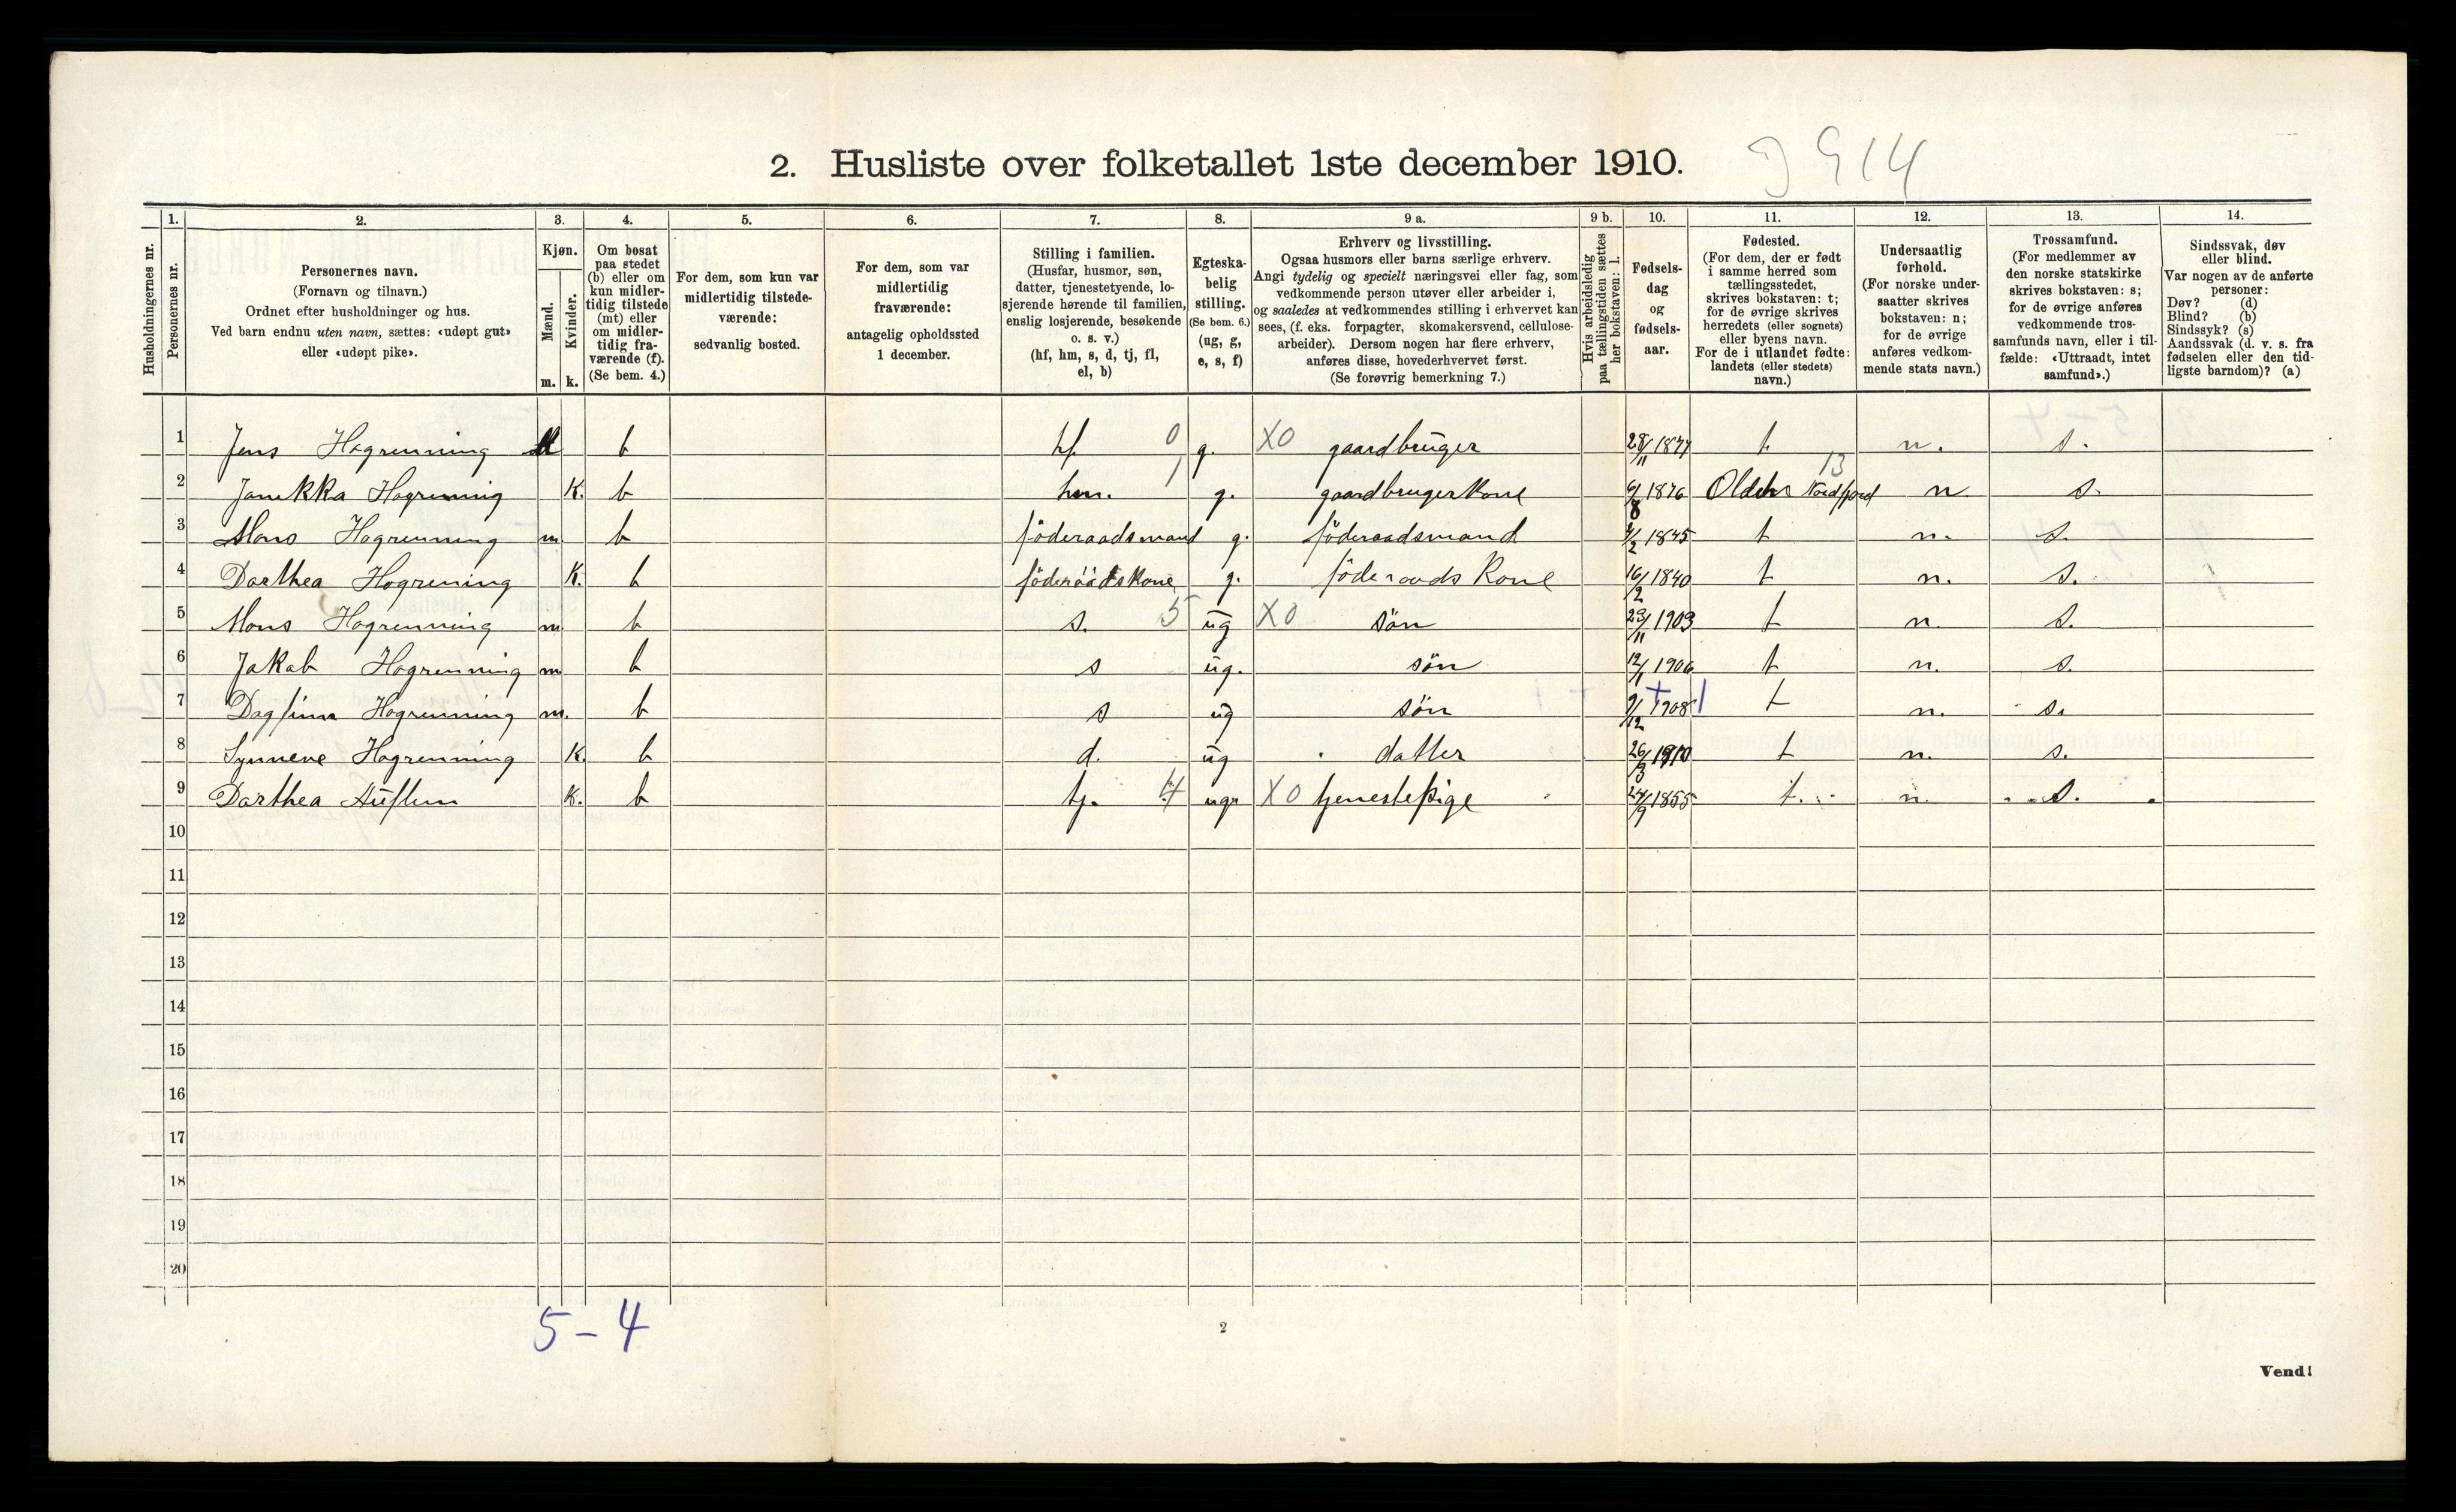 2. Husliste over folketallet 1ste december 1910.
J 914
Husholdningernes nr.
1. Personernes nr.
2. Personernes navn. (Fornavn og tilnavn.) Ordnet efter husholdninger og hus. Ved barn endnu uten navn, sættes: «udøpt gut» eller «udøpt pike».
3. Kjøn. Mænd. m. Kvinder. k.
4. Om bosat paa stedet (b) eller om kun midlertidig tilstede (mt) eller om midlertidig fraværende (f). (Se bem. 4.)
5. For dem, som kun var midlertidig tilstedeværende: sedvanlig bosted.
6. For dem, som var midlertidig fraværende: antagelig opholdssted 1 december.
7. Stilling i familien. (Husfar, husmor, søn, datter, tjenestetyende, losjerende hørende til familien, enslig losjerende, besøkende o. s. v.) (hf, hm, s, d, tj, fl, el, b)
8. Egteskabelig stilling. (Se bem. 6.) (ug, g, e, s, f)
9 a. Erhverv og livsstilling. Ogsaa husmors eller barns særlige erhverv. Angi tydelig og specielt næringsvei eller fag, som vedkommende person utøver eller arbeider i, og saaledes at vedkommendes stilling i erhvervet kan sees, (f. eks. forpagter, skomakersvend, cellulosearbeider). Dersom nogen har flere erhverv, anføres disse, hovederhvervet først. (Se forøvrig bemerkning 7.)
9 b. Hvis arbeidsledig paa tællingstiden sættes her bokstaven: l.
10. Fødselsdag og fødselsaar.
11. Fødested. (For dem, der er født i samme herred som tællingsstedet, skrives bokstaven: t; for de øvrige skrives herredets (eller sognets) eller byens navn. For de i utlandet fødte: landets (eller stedets) navn.)
12. Undersaatlig forhold. (For norske undersaatter skrives bokstaven: n; for de øvrige anføres vedkommende stats navn.)
13. Trossamfund. (For medlemmer av den norske statskirke skrives bokstaven: s; for de øvrige anføres vedkommende trossamfunds navn, eller i tilfælde: «Uttraadt, intet samfund».)
14. Sindssvak, døv eller blind. Var nogen av de anførte personer: Døv? (d) Blind? (b) Sindssyk? (s) Aandssvak (d. v. s. fra fødselen eller den tidligste barndom)? (a)
1 Jens Hogrenning M b hf. 0 g. X0 gaardbruger 28/11 1871 t n. s.
2 Janikka Hogrenning K. b hm. 1 g. gaardbrugerkone 6/8 1876 Olden Nordfjord 13 n s.
3 Mons Hogrenning m b föderaadsmand g. föderaadsmand /2 1845 t n. s.
4 Darthea Hogrening K. b föderaadskone g. föderaads Kone 16/2 1840 t n. s.
5 Mons Hogrenning m b s. 5 ug X0 sön 23/11 1903 t n. s.
6 Jakob Hogrenning m b s ug. sön 12/1 1906 t n. s.
7 Dagfinn Hogrenning m. b s ug sön 9/12 1908 t n. s.
8 Synneve Hogrenning K. b d. ug datter 26/3 1910 t n. s.
9 Darthea Auflem K. b tj. 4 ug X0 tjenestepige 24/9 1855 t. n. s.
10
11
12
13
14
15
16
17
18
19
20
5-4
2
Vend!